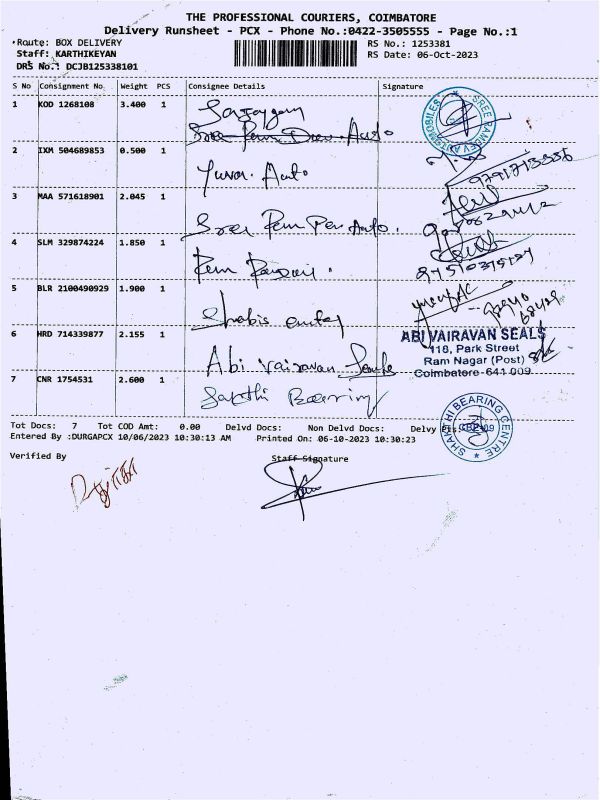 THE PROFESSIONAL COURIERS, COIMBATORE
Delivery Runsheet - PCX - Phone No.:0422-3505555 - Page No.:1
Route: BOX DELIVERY
RS No.: 1253381
Staff: KARTHIKEYAN
RS Date: 06-Oct-2023
DRS No.: DCJB125338101
S No Consignment No. Weight PCS Consignee Details Signature
1 KOD 1268108 3.400 1
SREE RAMDEV AUTOMOBILES
2 IXM 504689853 0.500 1
Yuva. Auto
3 MAA 571618901 2.045 1
Auto.
4 SLM 329874224 1.850 1
Ram
5 BLR 2100490929 1.900 1
6 HRD 714339877 2.155 1
Abi Vairavan Seals
ABI VAIRAVAN SEALS
118, Park Street
Ram Nagar (Post)
Coimbatore-641 009
7 CNR 1754531 2.600 1
Sakthi Bearing
SHAKTHI BEARING CENTRE
Tot Docs: 7 Tot COD Amt: 0.00 Delvd Docs: Non Delvd Docs: Delvy
Entered By :DURGAPCX 10/06/2023 10:30:13 AM Printed On: 06-10-2023 10:30:23
Verified By Staff Signature